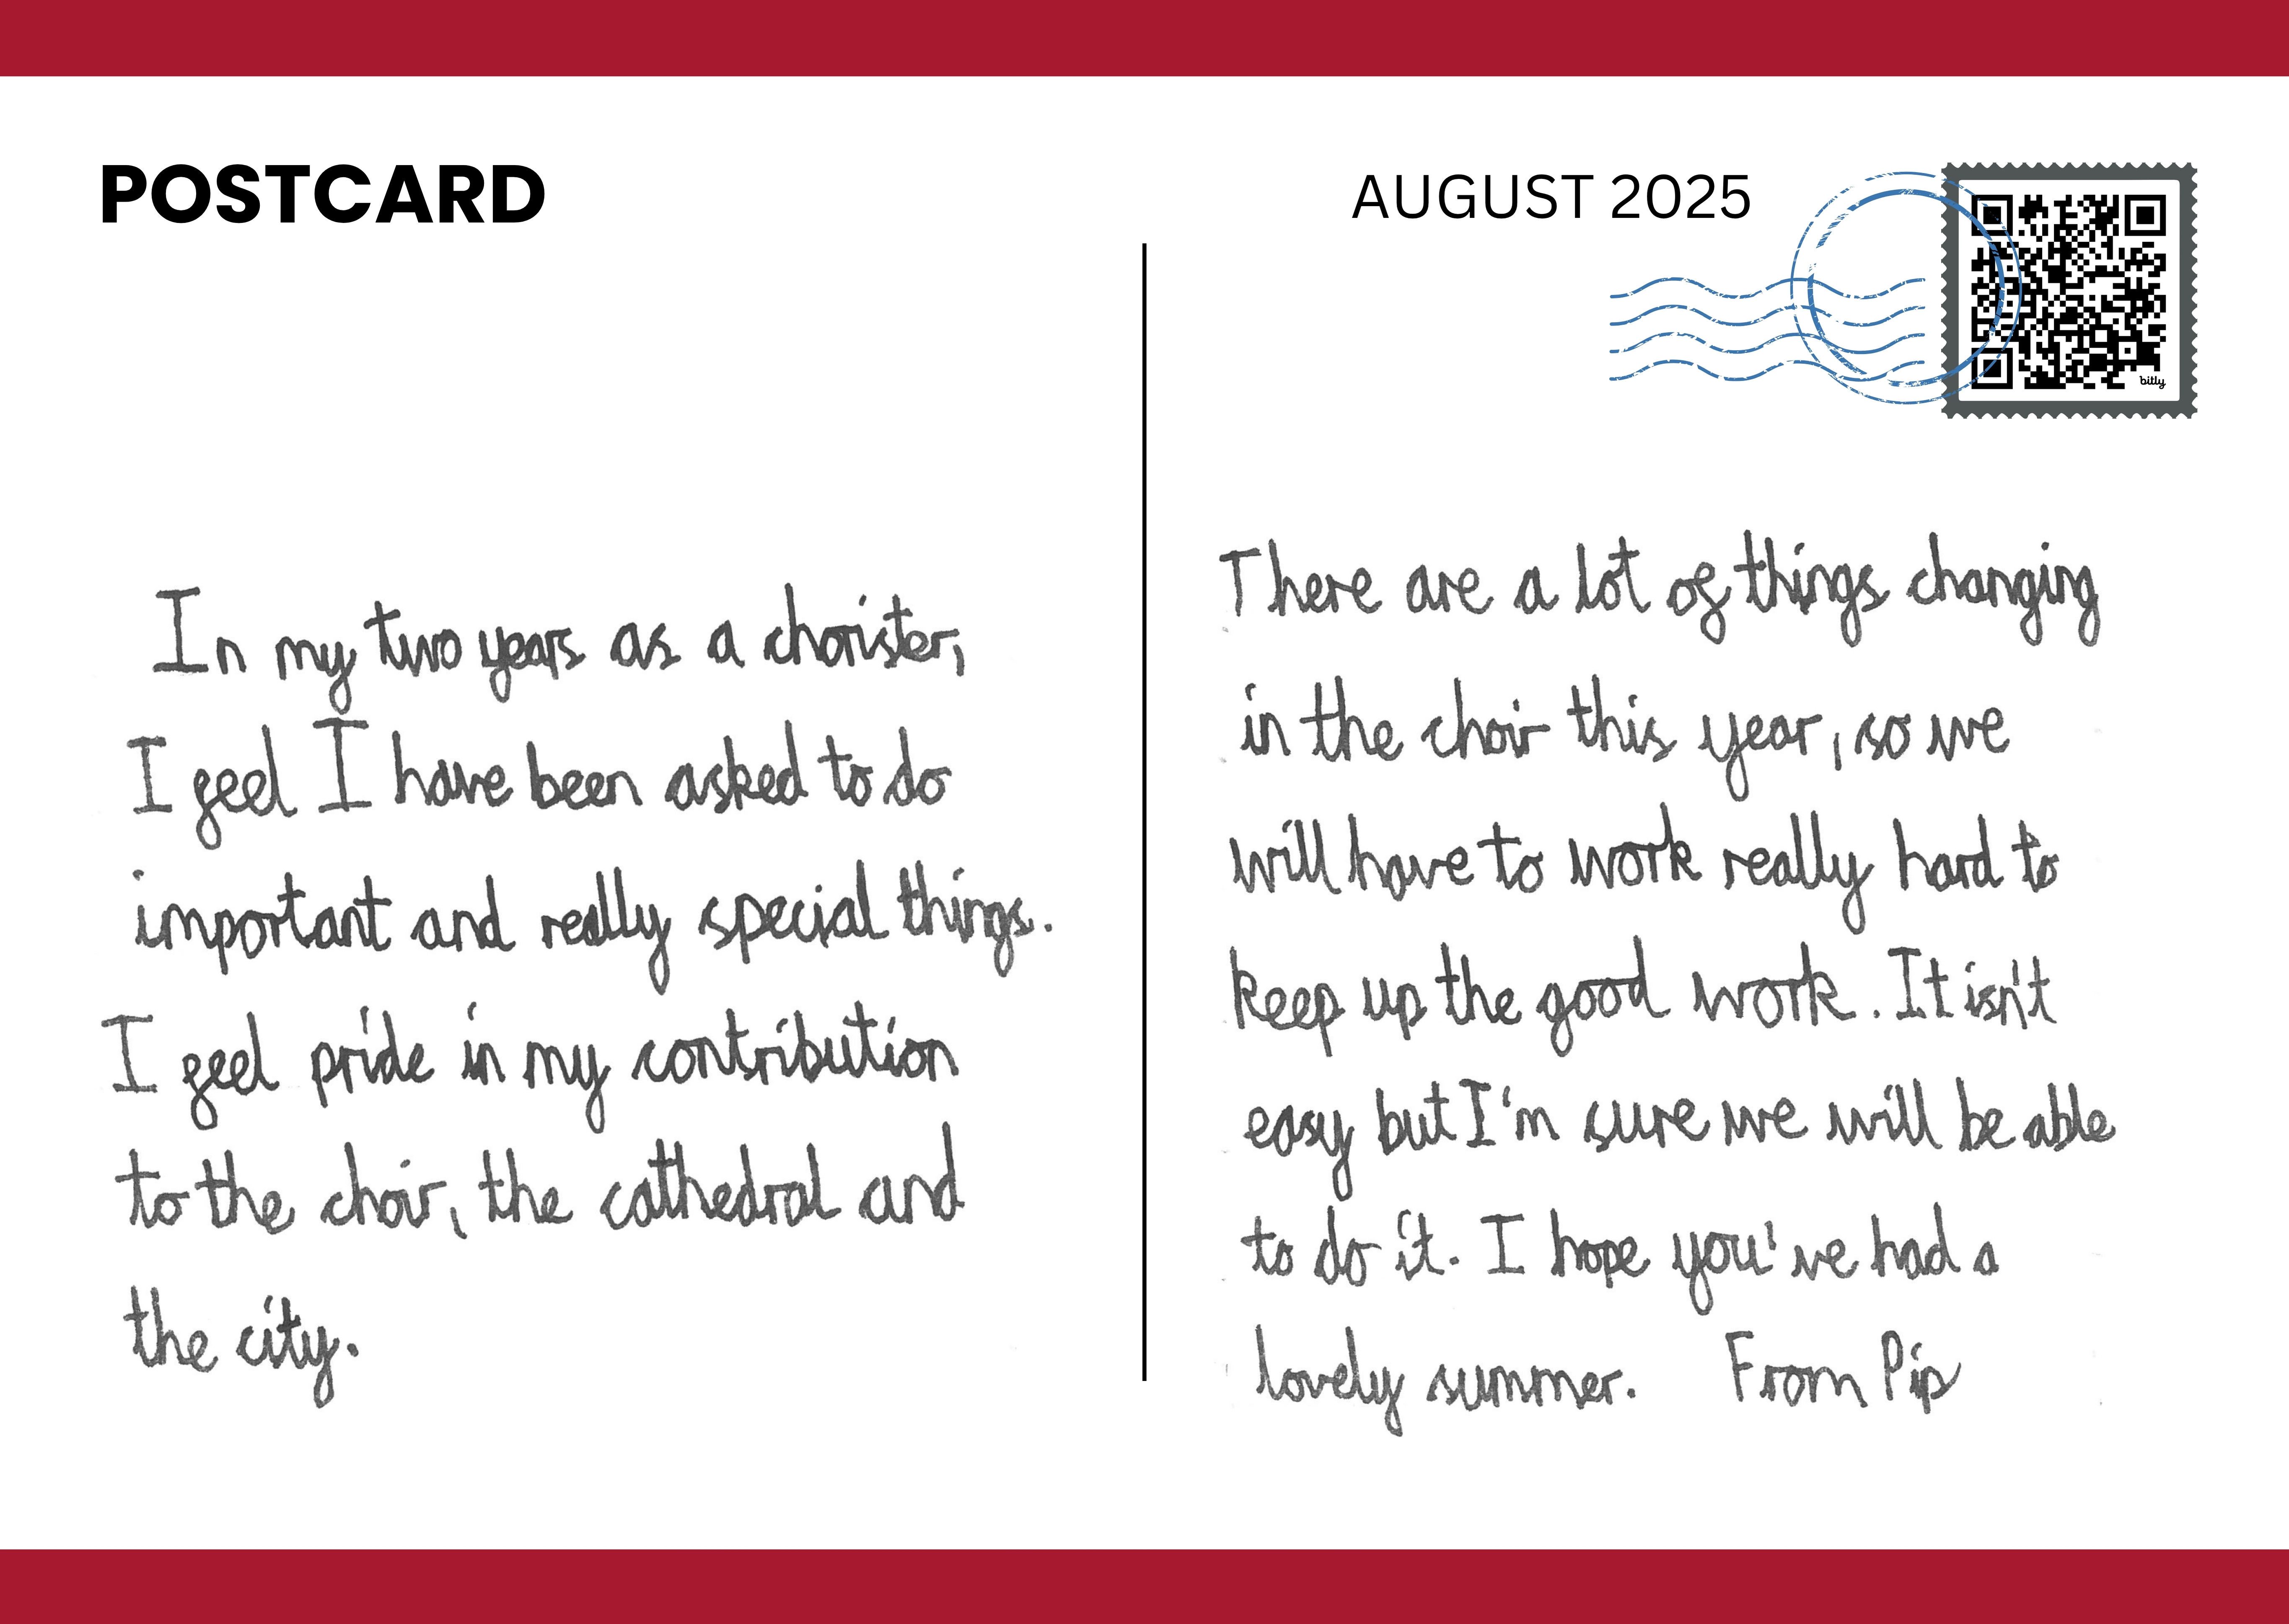 POSTCARD
In my two years as a chorister,
I feel I have been asked to do
important and really special things.
I feel pride in my contribution
to the choir, the cathedral and
the city.
AUGUST 2025
bitly
There are a lot of things changing
in the choir this year, so we
will have to work really hard to
keep up the good work. It isn't
easy but I'm sure we will be able
to do it. I hope you've had a
lovely summer. From Pip